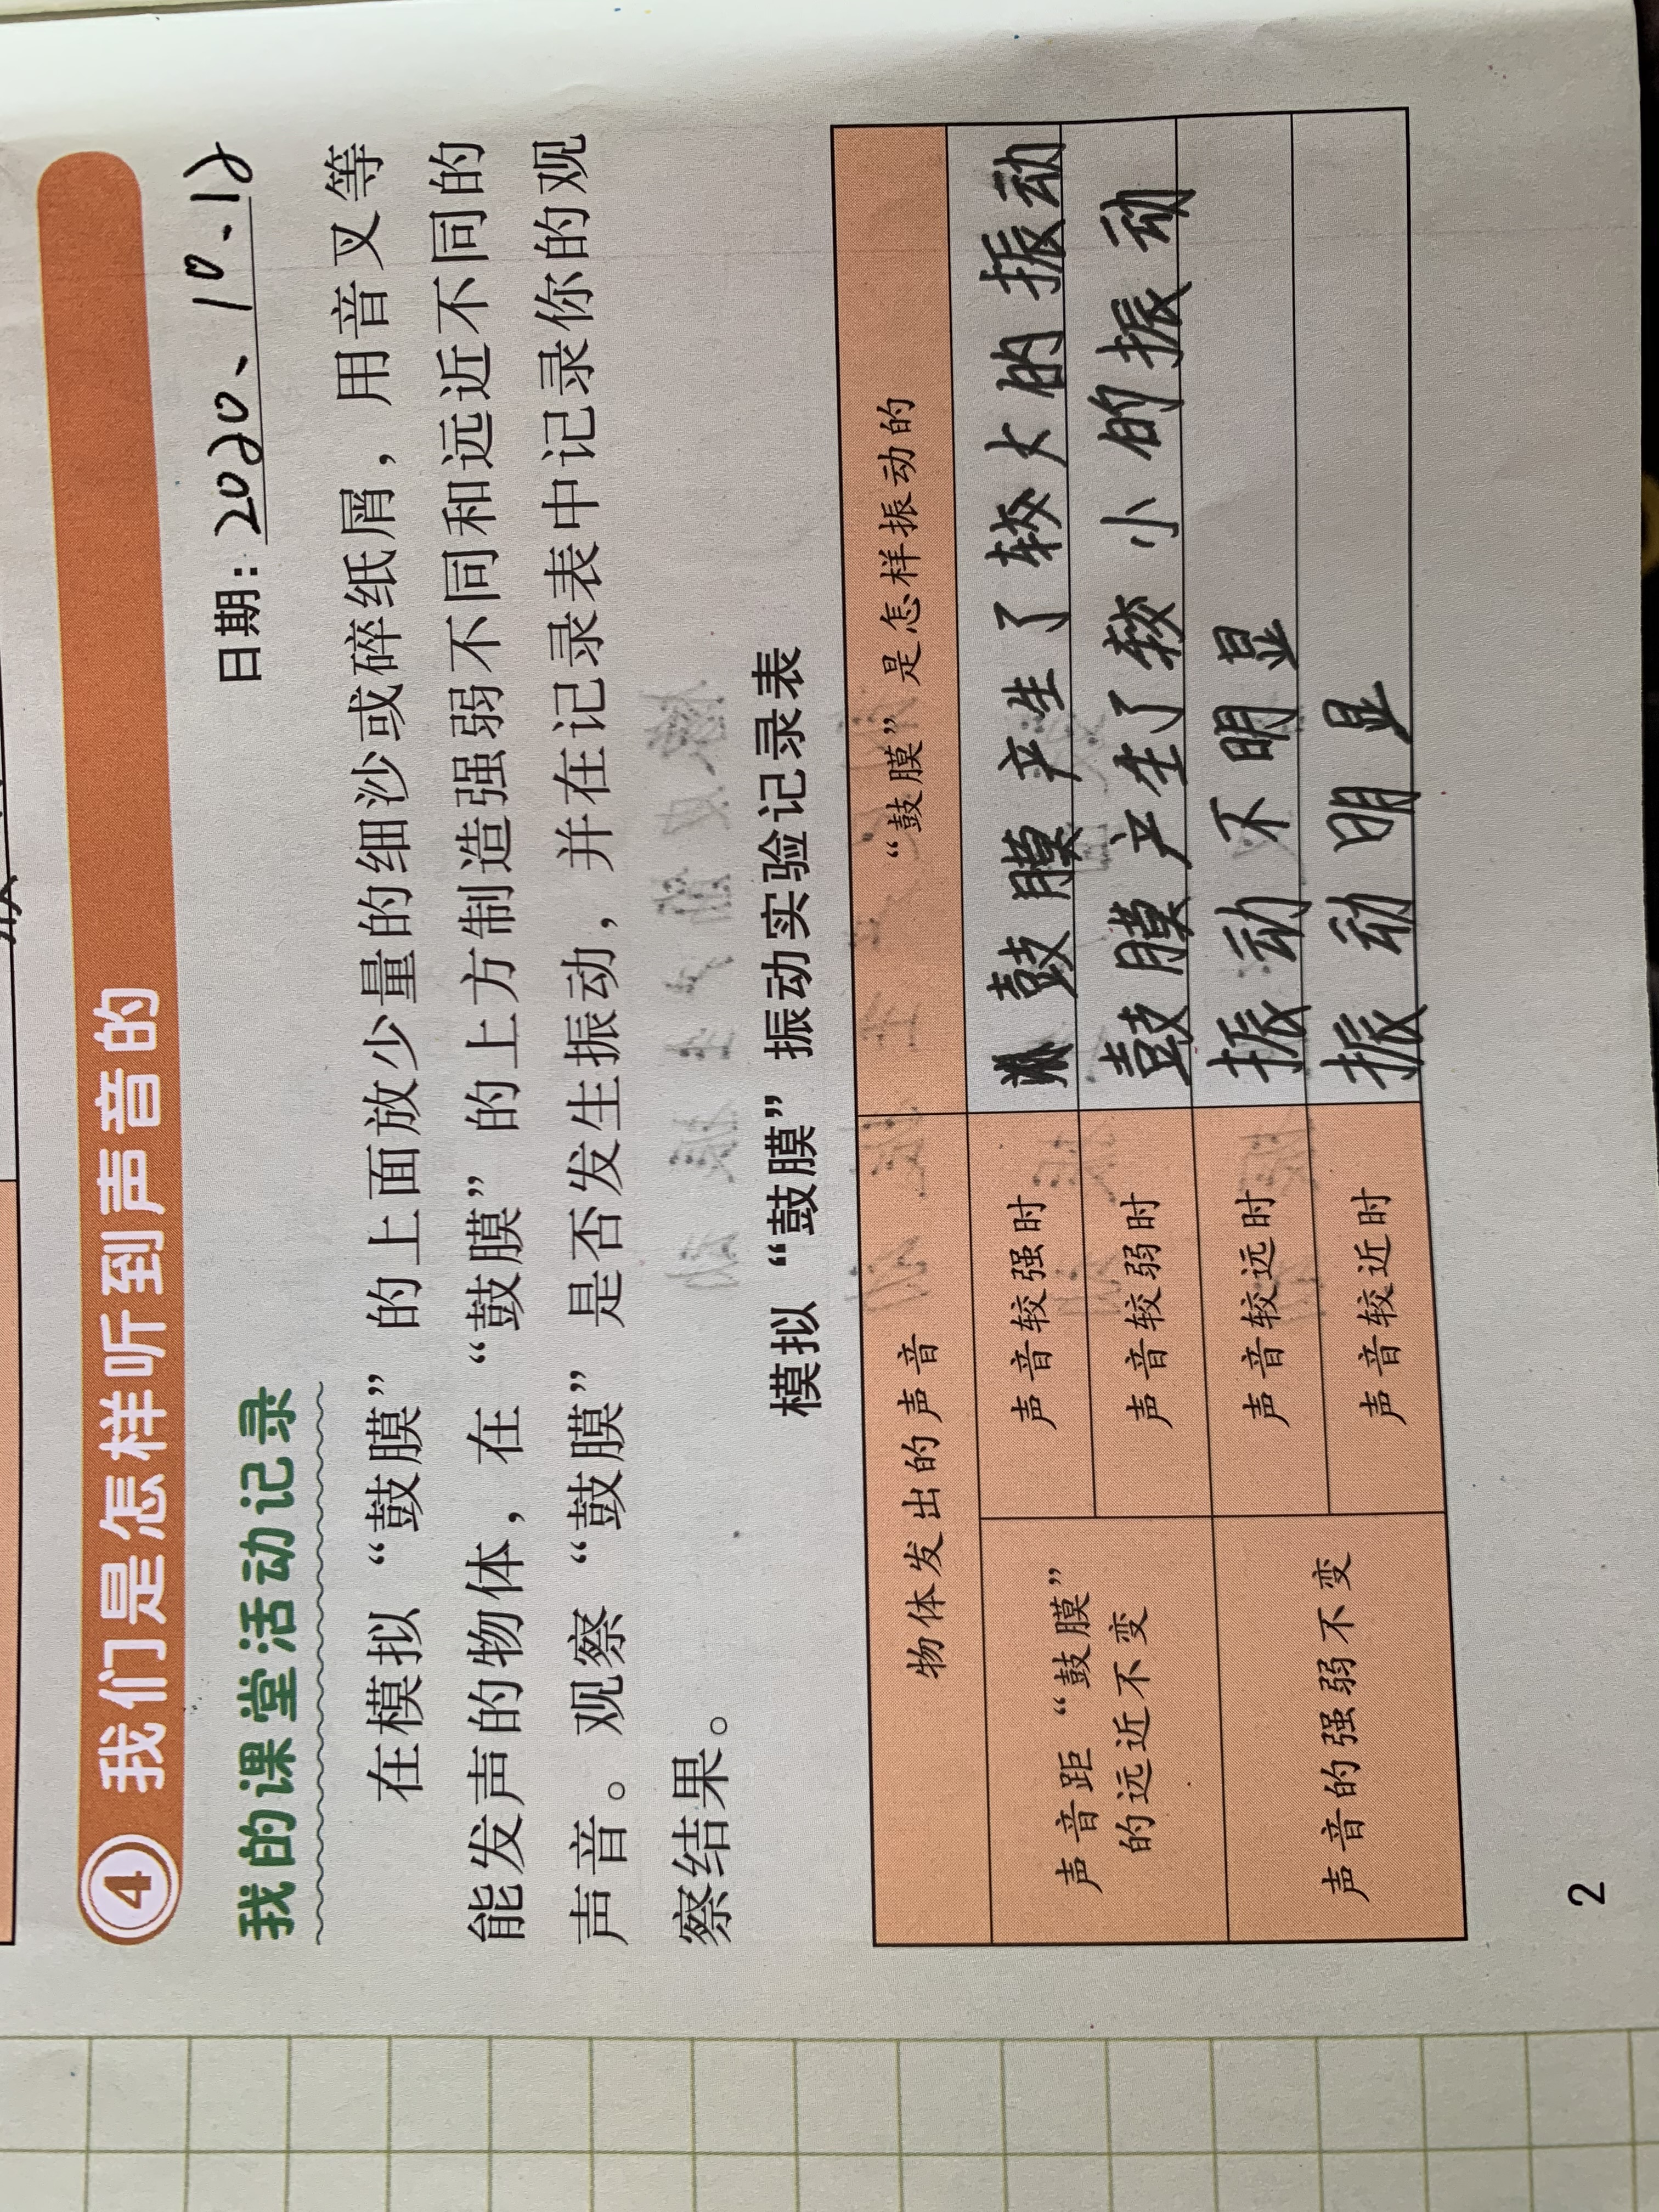 4 我们是怎样听到声音的
日期：2020、10、12
我的课堂活动记录
在模拟“鼓膜”的上面放少量的细沙或碎纸屑，用音叉等
能发声的物体，在“鼓膜”的上方制造强弱不同和远近不同的
声音。观察“鼓膜”是否发生振动，并在记录表中记录你的观
察结果。
模拟“鼓膜”振动实验记录表
物体发出的声音 “鼓膜”是怎样振动的
声音距“鼓膜”
的远近不变
声音较强时 鼓膜产生了较大的振动
声音较弱时 鼓膜产生了较小的振动
声音的强弱不变
声音较远时 振动不明显
声音较近时 振动明显
2